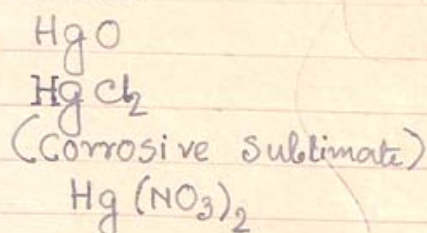 HgO
HgCl₂
(Corrosive Sublimate)
Hg(NO₃)₂